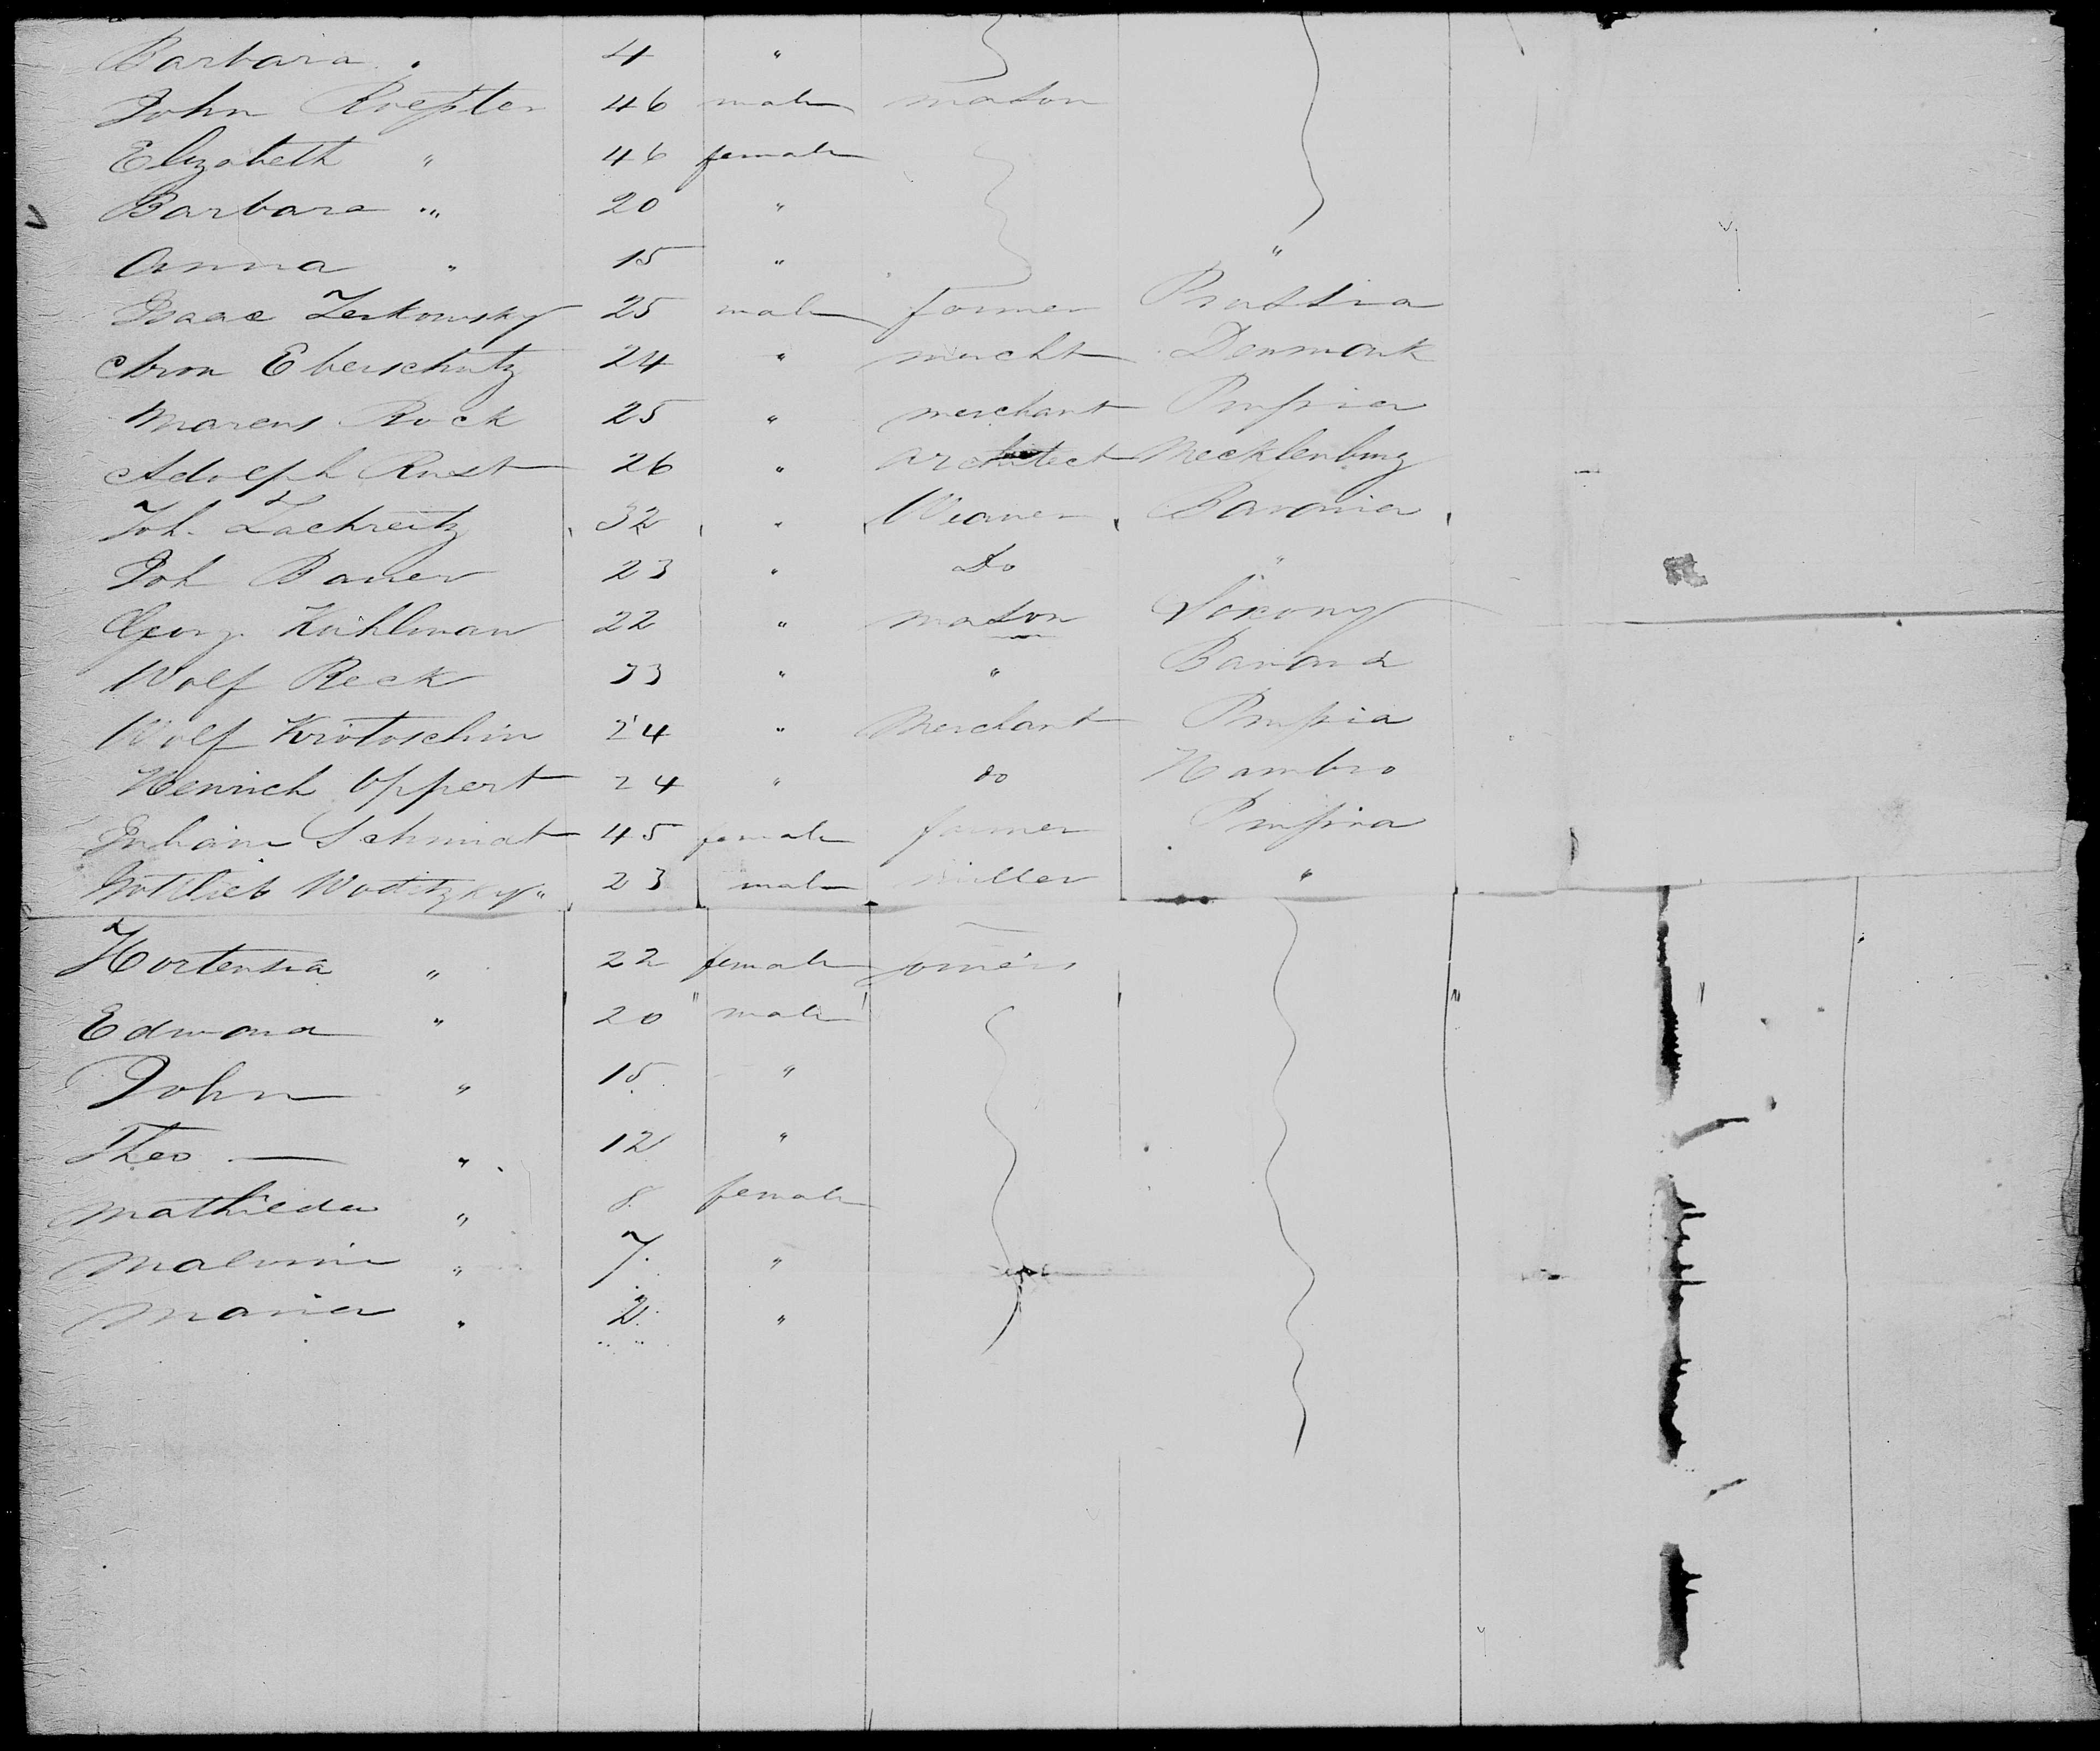 Barbara " 4 "
John Roeßler 46 male mason
Elizabeth " 46 female
Barbara " 20 "
Anna " 15 " "
Isaac Zerkowsky 25 male farmer Prussia
Aron Eberschutz 24 " mercht Denmark
Marcus Rock 25 " merchant Prussia
Adolph Rust 26 " architect Mecklenburg
Joh. Zachreitz 32 " Weaver Bavaria
Joh Bauer 23 " Do "
Georg Kuhlman 22 " mason Saxony
Wolf Reck 33 " " Bavaria
Wolf Krotoschin 24 " Merchant Prussia
Henrich Oppert 24 " do Hambro
Schmidt 45 female farmer Prussia
Gottlieb Woditzky " 23 male miller "
Hortensia " 22 female
Edmond " 20 " male
John " 15 "
Theo — " 12 "
Mathilda " 8 female
Malvine " 7 "
Maria " 2 "